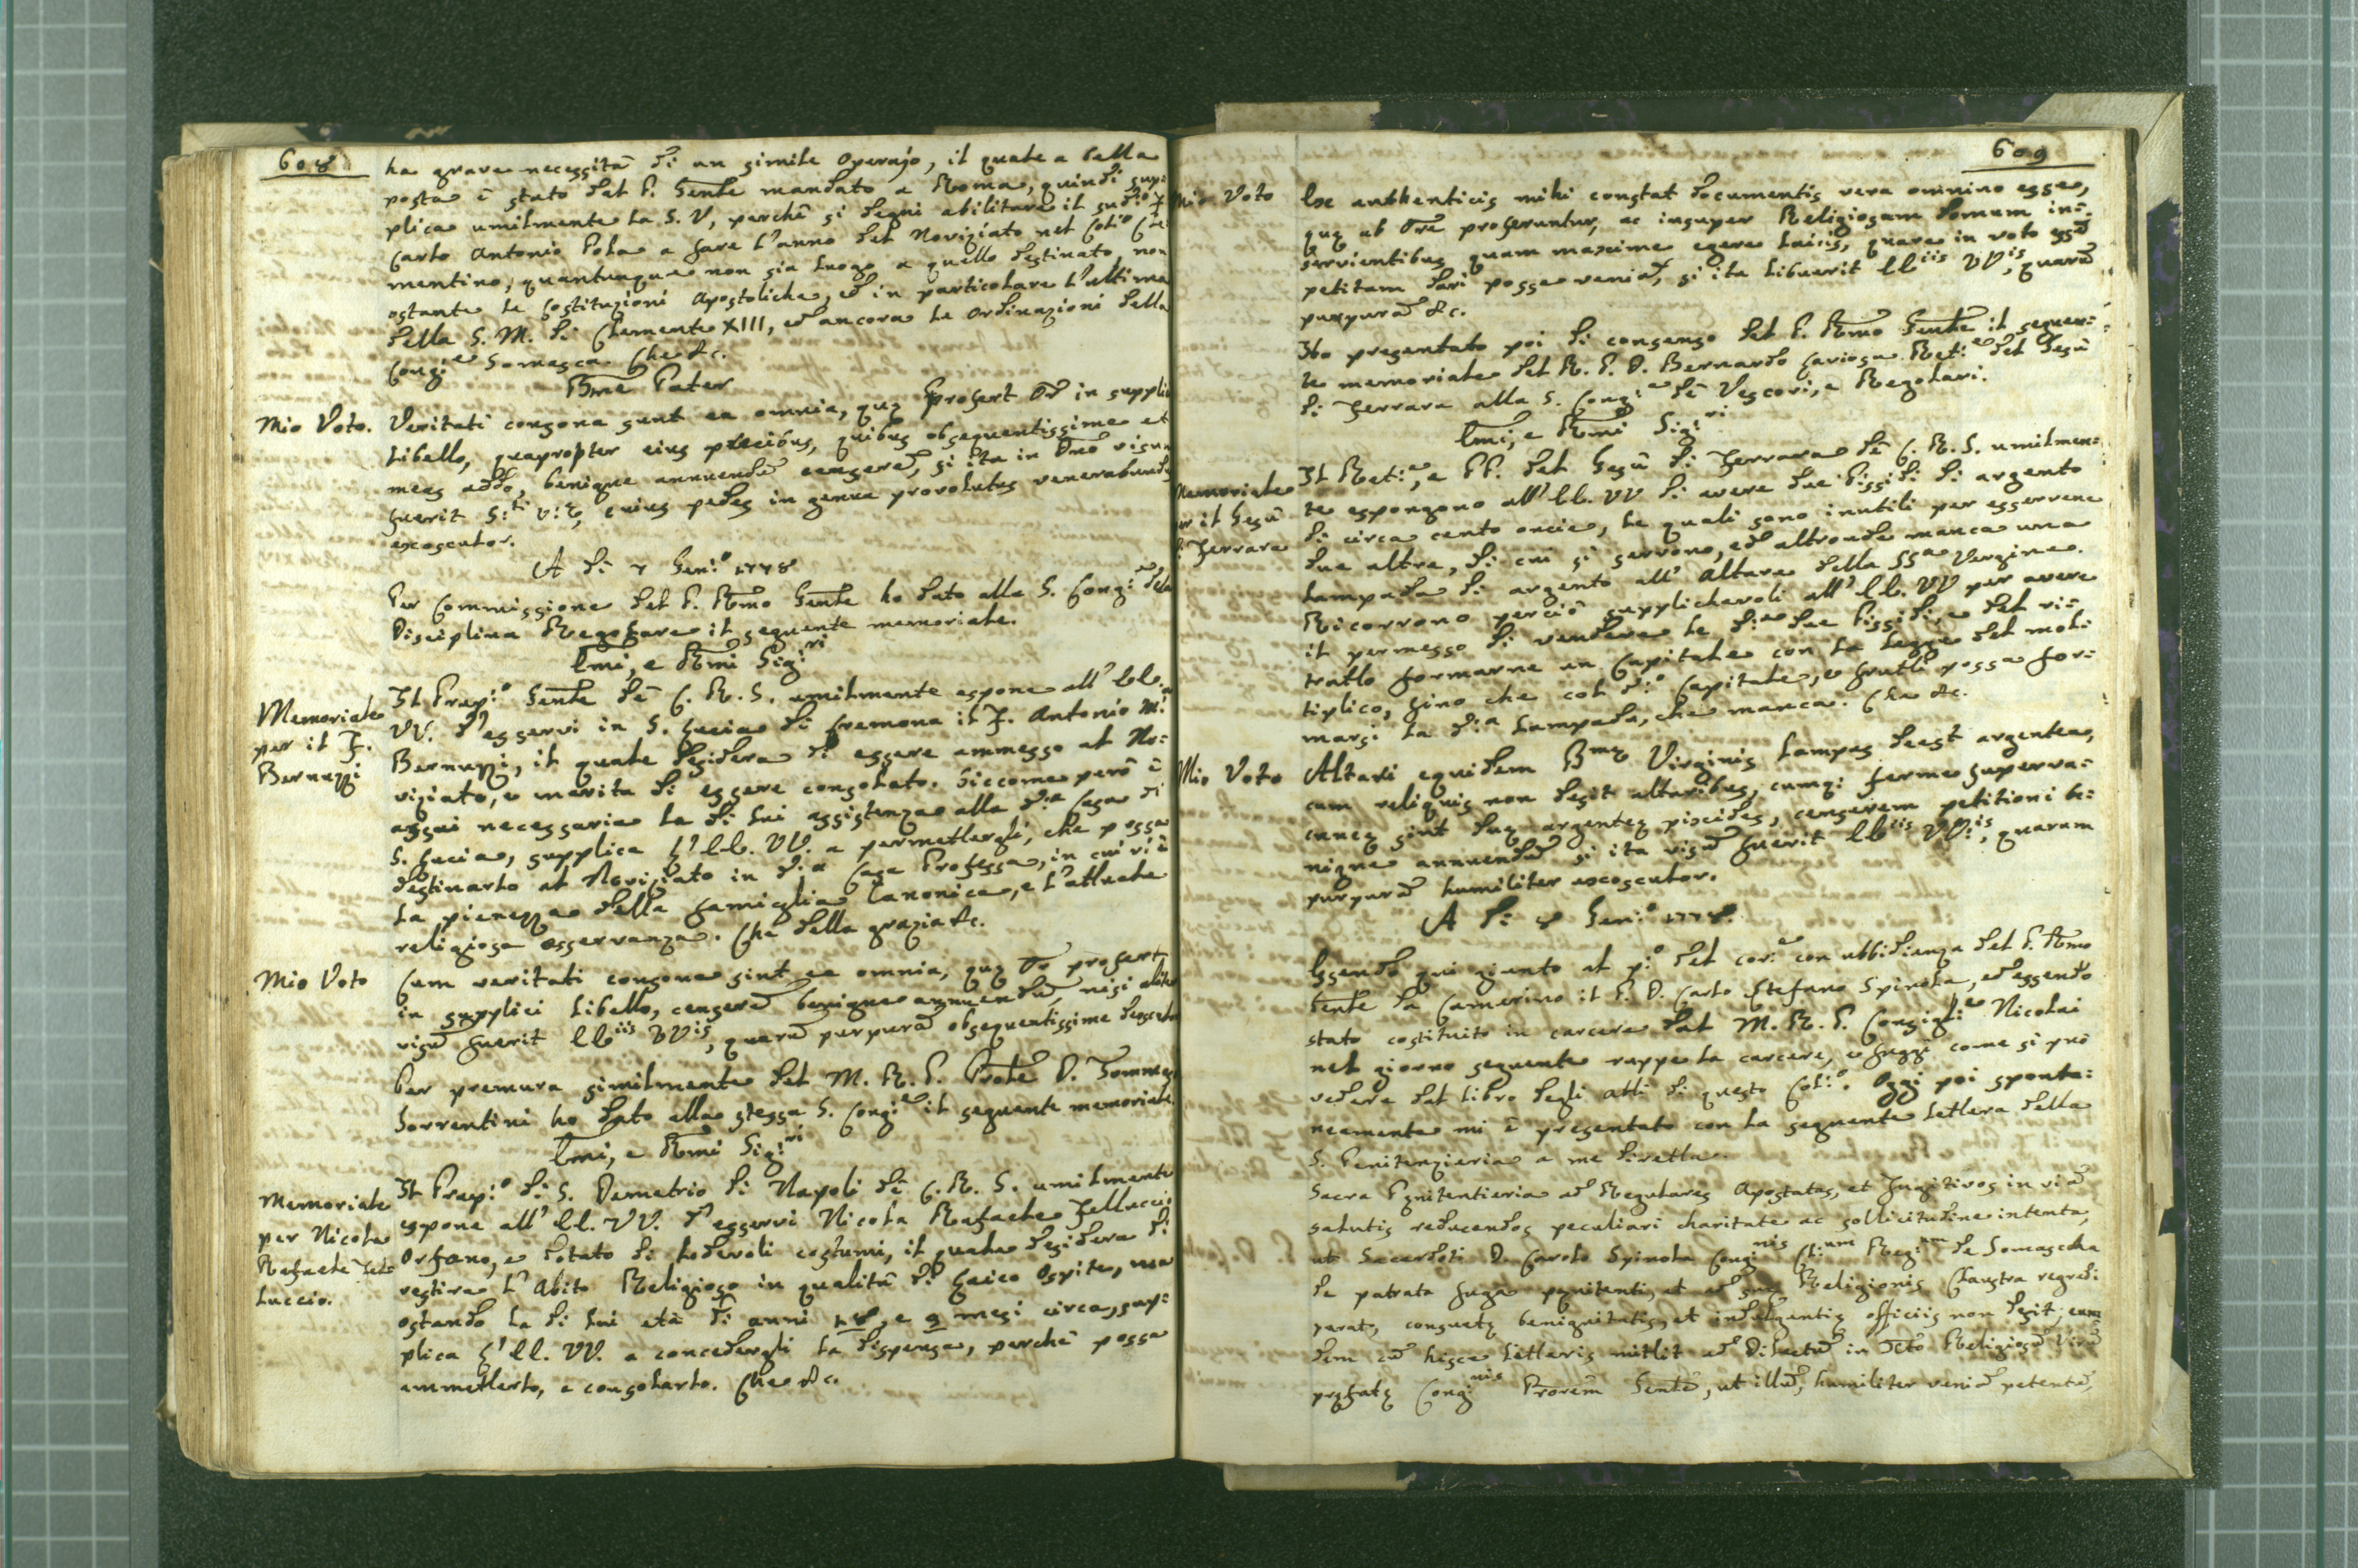 608
ha grave necessità di un simile operajo, il quale a bella
posta è stato dal P. Gen̅le mandato a Roma, quindi sup:
plica umilmente la S. V, perchè si degni abilitare il sud:o F.
Carlo Antonio Pola a fare l'anno del Noviziato nel Col:o Cle
mentino, quantunque non sia luogo a quello destinato, non
ostante le Costituzioni Apostoliche, ed in particolare l'ultima
della S. M. di Clemente XIII, ed ancora le ordinazioni della
Cong:e Somasca. Che &c.
Bm̅e Pater
Mio Voto. Veritati consona sunt ea omnia, quę profert Or̅ in supplici
libello, quapropter eius precibus, quibus obsequentissime et
meas addo, benigne annuendu̅ censere̅, si ita in Dn̅o visum
fuerit S:ti V:ę, cuius pedes in genua provolutus venerabundus
exosculor.
A di 7 Gen:o 1778
Per Commissione del P. Rm̅o Gen̅le ho dato alla S. Cong:e della
Disciplina Regolare il seguente memoriale.
Em̅i, e Rm̅i Sig:ri
Memoriale
per il F.
Bernuzzi
Il Prep:o Gen̅le de' C. R. S. umilmente espone all' EE.
VV. d'esservi in S. Lucia di Cremona il F. Antonio M:a
Bernuzzi, il quale desidera di essere ammesso al No:
viziato, e merita di essere consolato. Siccome però è
assai necessaria la di lui assistenza alla d:a Casa di
S. Lucia, supplica l'EE. VV. a permettergli, che possa
destinarlo al Noviziato in d:a Casa Professa, in cui vi è
la pienezza della famiglia Canonica, e l'attuale
religiosa osservanza. Che della grazia &c.
Mio Voto Cum veritati consona sint ea omnia, quę Or̅ profert
in supplici libello, censere̅ benigne annuendu̅, nisi aliter
visu̅ fuerit EEiis VVis, quaru̅ purpura̅ obsequentissime deosculor
Per premura similmente del M. R. P. Pro̅le D. Tommaso
Sorrentini ho dato alla stessa S. Cong:e il seguente memoriale
Em̅i, e Rm̅i Sig:ri
Memoriale
per Nicola
Rafaele Fel
luccio.
Il Prep:o di S. Demetrio di Napoli de' C. R. S. umilmente
espone all' EE. VV. d'esservi Nicola Rafaele Felluccio
Orfano, e dotato di lodevoli costumi, il quale desidera di
vestire l'Abito Religioso in qualità di Laico Ospite, ma
ostando la di lui età di anni 18, e 9 mesi circa, sup:
plica l'EE. VV. a concedergli la dispensa, perchè possa
ammetterlo, e consolarlo. Che &c.
609
Mio Voto Ex authenticis mihi constat documentis vera omnino esse,
quę ab Or̅e proferuntur, ac insuper Religiosam domum in:
servientibus quam maxime egere laicis, quare in voto esse̅
petitam dari posse venia̅, si ita libuerit EEiis VVis, quaru̅
purpura̅ &c.
Ho presentato poi di consenso del P. Rm̅o Gen̅le il seguen:
te memoriale del R. P. D. Bernardo Cariosa Ret:e del Gesù
di Ferrara alla S. Cong:e de' Vescovi, e Regolari.
Em̅i, e Rm̅i Sig:ri
Memoriale
per il Gesù
di Ferrara
Il Ret:e, e PP. del Gesù di Ferrara de' C. R. S. umilmen:
te espongono all' EE. VV di avere due Pissidi di argento
di circa cento oncie, le quali sono inutili per esservene
due altre, di cui si servono, ed altronde manca una
lampada di argento all' Altare della SSa Vergine.
Ricorrono perciò supplichevoli all' EE. VV per avere
il permesso di vendere le d:e due Pissidi, e del ri:
tratto formarne un Capitale con la legge del molti
tiplico, sino che col d:o Capitale, e frutti possa for:
marsi la d:a lampada, che manca. Che &c.
Mio Voto Altari equidem Bmę Virginis lampas deest argentea,
cum reliquis non desit altaribus, cumq; ferme superva:
cuneę sint duę argenteę pixides, censerem petitioni be:
nigne annuendu̅ si ita visu̅ fuerit EEiis VV:is, quarum
purpura̅ humiliter exosculor.
A di 8 Gen:o 1778.
Essendo qui giunto al p:o del cor:e con ubbidienza del P. Rm̅o
Gen̅le da Camerino il P. D. Carlo Stefano Spinola, ed essendo
stato costituito in carcere dal M. R. P. Consigl:e Nicolai
nel giorno seguente ruppe la carcere, e fuggì come si può
vedere dal libro degli atti di questo Col:o. Oggi poi sponta:
neamente mi è presentato con la seguente lettera della
S. Penitenzieria a me diretta.
Sacra Pęnitentieria ad Regulares Apostatas, et Fugitivos in via̅
salutis reducendos peculiari charitate ac sollicitudine intenta,
ut Sacerdoti D. Carolo Spinola Congnis Cl:um Reg:um de Somascha
de patrata fuga pęnitenti, et ad suę Religionis Claustra regredi
parato, consuetę benignitatis, et indulgentię officiis non desit; eum
dem cu̅ hisce litteris mittit ad Dilectu̅ in Xto Religiosu̅ Viru̅
pręfatę Congnis Pro̅rem Gen̅le̅, ut illu̅, humiliter venia̅ petente̅,